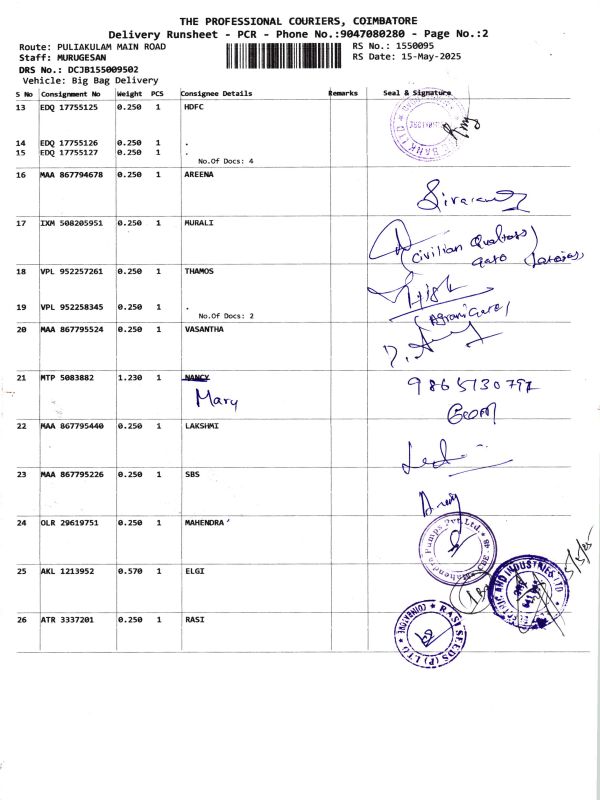 THE PROFESSIONAL COURIERS, COIMBATORE
Delivery Runsheet - PCR - Phone No.:9047080280 - Page No.:2
Route: PULIAKULAM MAIN ROAD RS No.: 1550095
Staff: MURUGESAN RS Date: 15-May-2025
DRS No.: DCJB155009502
Vehicle: Big Bag Delivery
S No Consignment No Weight PCS Consignee Details Remarks Seal & Signature
13 EDQ 17755125 0.250 1 HDFC
14 EDQ 17755126 0.250 1 .
15 EDQ 17755127 0.250 1 .
No.Of Docs: 4
16 MAA 867794678 0.250 1 AREENA
17 IXM 508205951 0.250 1 MURALI
(Civilian
18 VPL 952257261 0.250 1 THAMOS
19 VPL 952258345 0.250 1 .
No.Of Docs: 2
20 MAA 867795524 0.250 1 VASANTHA
21 MTP 5083882 1.230 1 NANCY
Mary
22 MAA 867795440 0.250 1 LAKSHMI
23 MAA 867795226 0.250 1 SBS
24 OLR 29619751 0.250 1 MAHENDRA
Mahendra Pumps Pvt.Ltd.
25 AKL 1213952 0.570 1 ELGI
INDUSTRIES LTD
26 ATR 3337201 0.250 1 RASI
RASI SEEDS (P) LTD